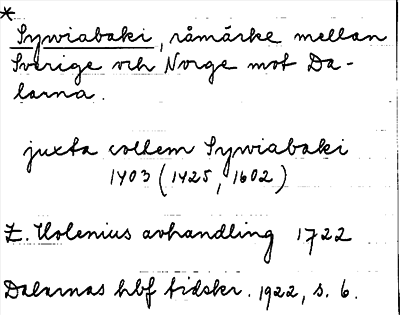 *
Sywiabaki, råmärke mellan
Sverige och Norge mot Da-
larna.
juxta collem Sywiabaki
1403 (1425, 1602)
E. Holenius avhandling 1722
Dalarnas hbf tidskr. 1922, s. 6.